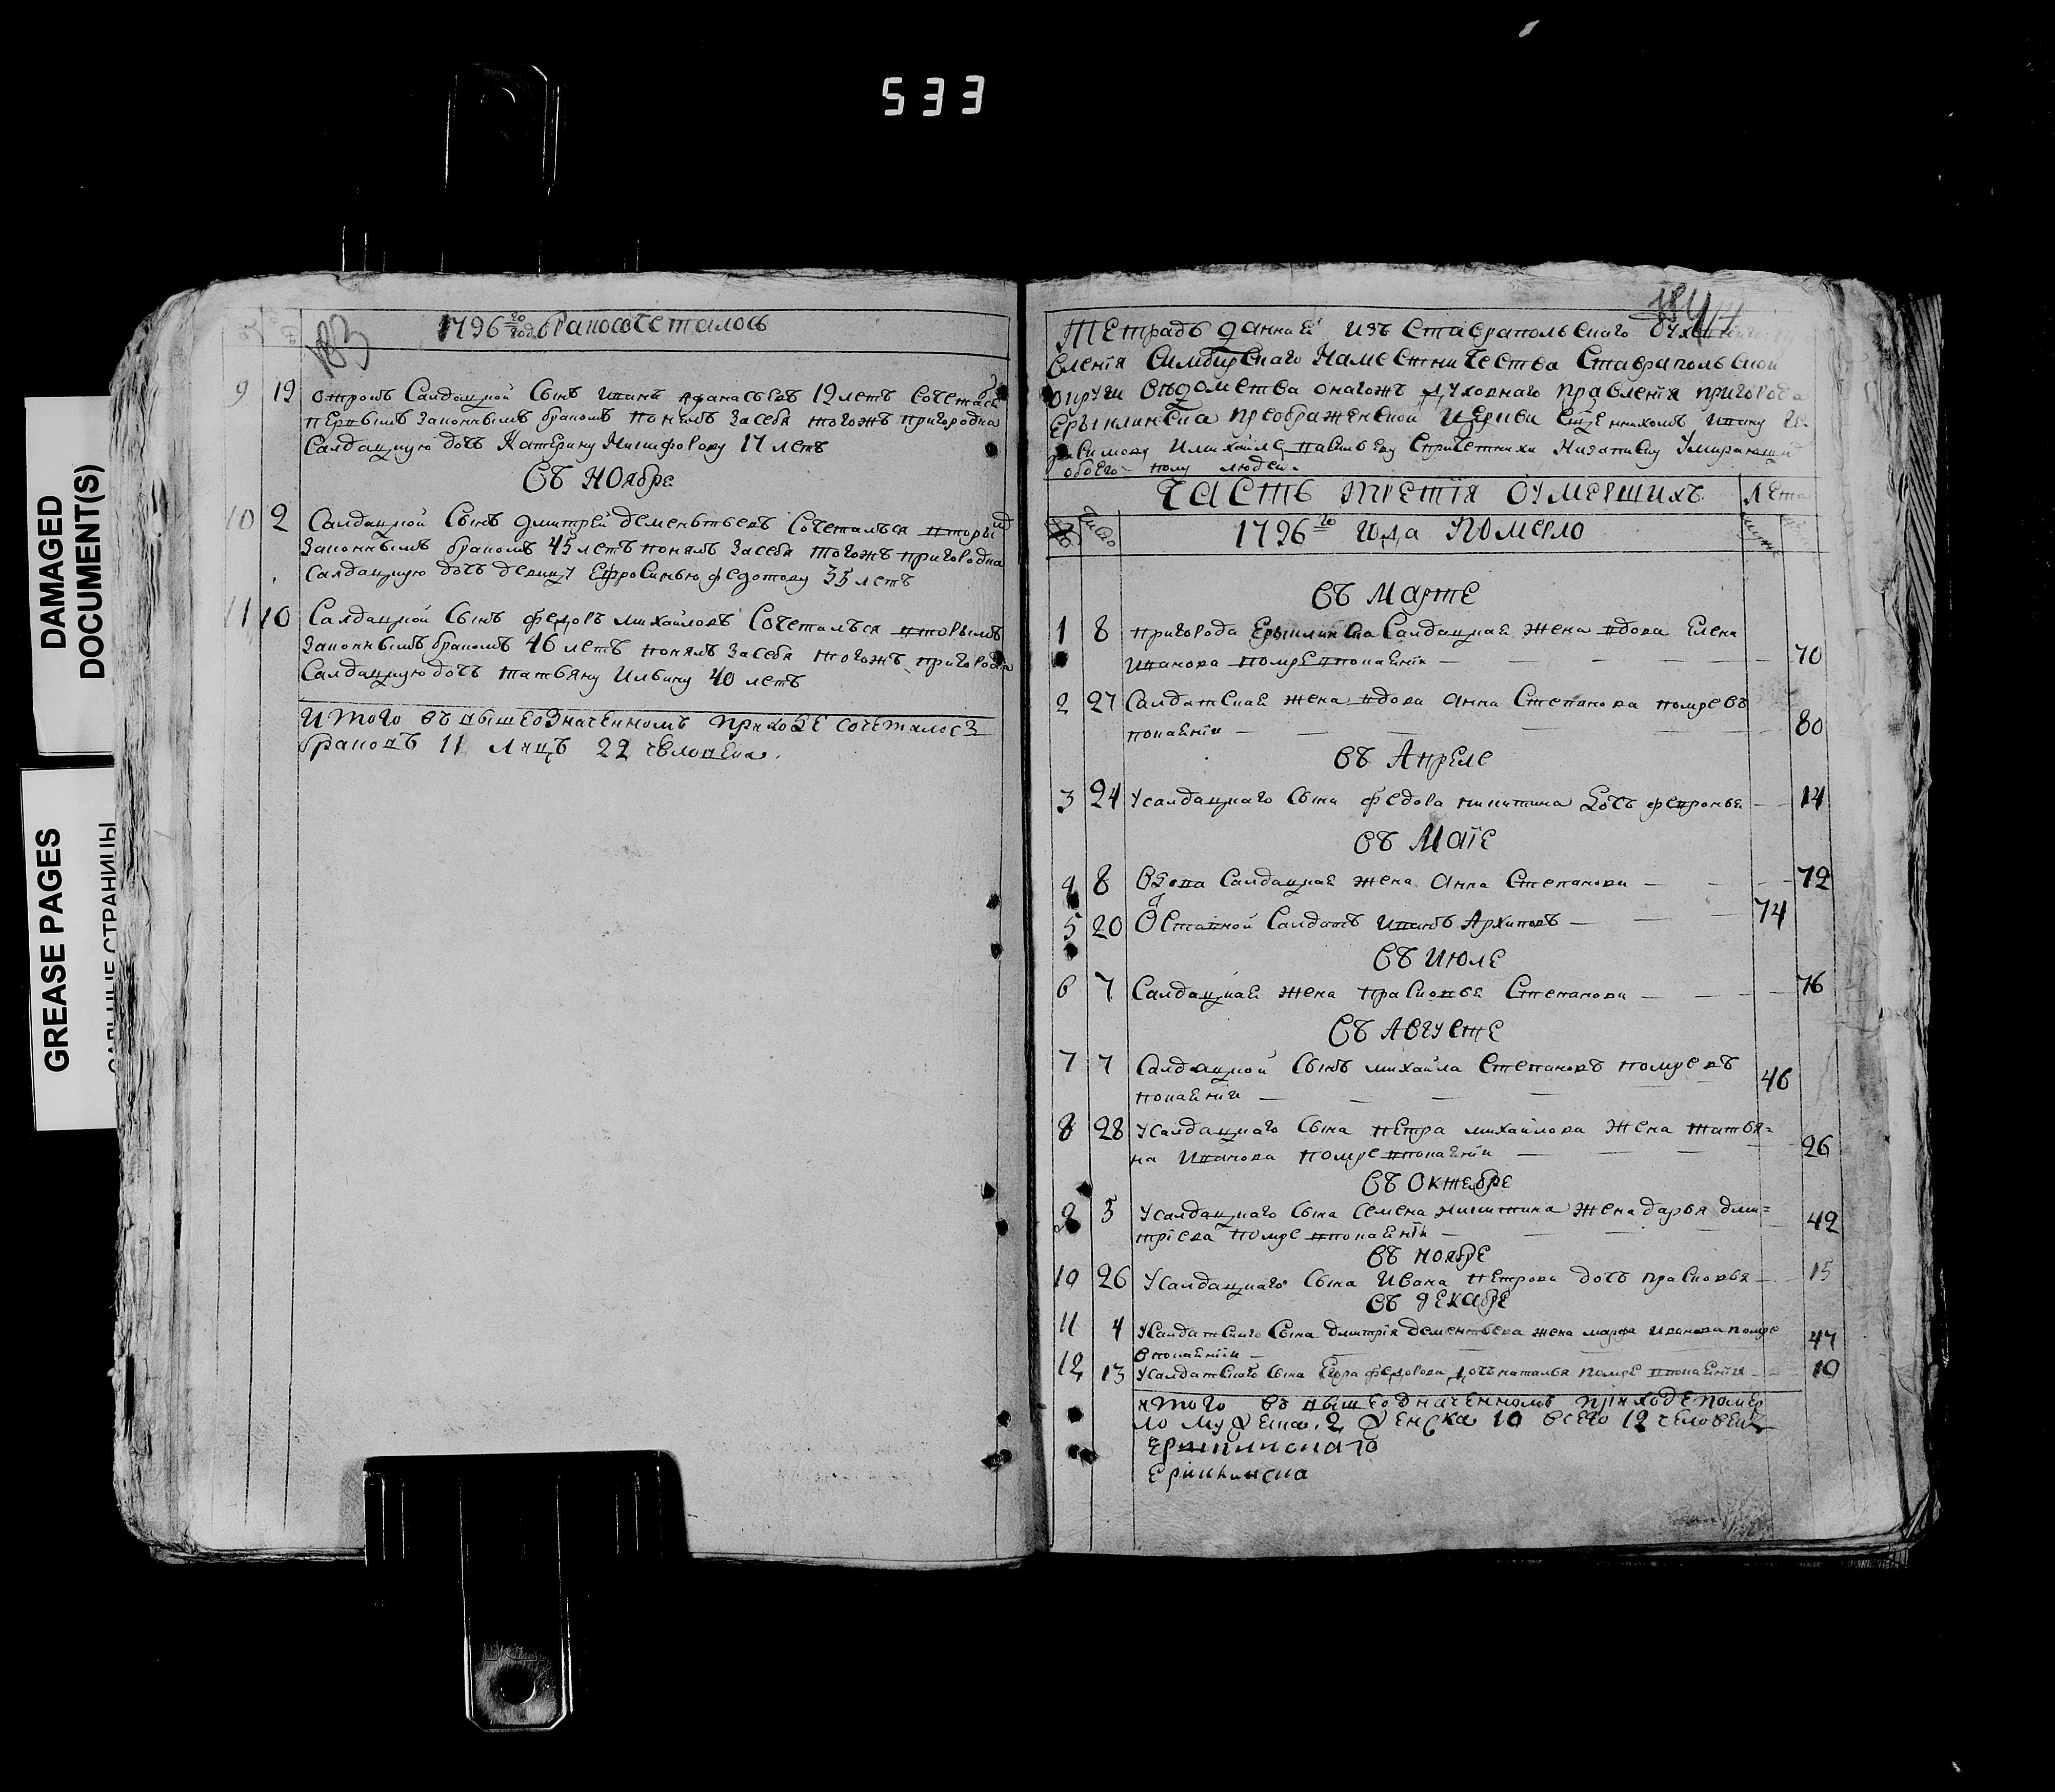 533
DAMAGED
DOCUMENT(S)
GREASE PAGES
САЛЬНЫЕ СТРАНИЦЫ
183
1796го года браковъ сочеталось
9 12 отрокъ Салдацкой Сынъ Иванъ Афанасьевъ 19 летъ сочетался
первымъ законнымъ бракомъ понялъ засебя тогожъ пригородка
Салдацкую дочь Катерину Никифорову 17 летъ
въ Ноябре
10 2 Салдацкой Сынъ дмитрей дементьевъ Сочетался вторы
Законнымъ бракомъ 45 летъ понялъ засебя тогожъ пригородка
Салдацкую дочь девицу Ефросинью федотову 35 летъ
11 10 Салдацкой Сынъ федоръ михайловъ Сочетался вторымъ
Законнымъ бракомъ 46 летъ понялъ засебя тогожъ пригородка
Салдацкую дочь татьяну Ильину 40 летъ
Итого въ вышеозначенномъ приходе сочеталось
браковъ 11 Лицъ 22 человека.
184
Тетрадь данная изъ Ставрапольскаго
вления Симбирскаго Наместничества Ставрапольской
округи ведомства онагожъ Духовнаго правления пригорода
Ерыклинска преображенской Церкви Священникомъ Ивану
Михайле Васильеву
обоего полу людей.
Часть третия оумершихъ Лета
число 1796го года Померло
въ Марте
1 8 пригорода Ерыклинска Салдацкая жена вдова Елена
Иванова помре впокаянии 70
2 27 Салдатская жена вдова Анна Степанова помре въ
покаянии 80
въ Апреле
3 24 У салдацкаго Сына федора никитина дочь февронья 14
въ Маїе
4 8 Вдова Салдацкая жена Анна Степанова 72
5 20 Отставной Салдатъ Иванъ Архиповъ 74
въ Июле
6 7 Салдацкая жена Прасковья Степанова 76
въ Августе
7 7 Салдацкой Сынъ михайла Степановъ помре въ
покаянии 46
8 28 У салдацкаго Сына петра михайлова жена татья=
на Иванова помре впокаянии 26
въ Октябре
9 5 У салдацкаго Сына Семена никитина жена дарья дми=
триева помре впокаянии 42
въ ноябре
10 26 У салдацкаго Сына Ивана петрова дочь прасковья 15
въ декабре
11 4 У Салдатскаго Сына дмитрия дементьева жена марфа Иванова помре
впокаянии 47
12 13 У салдатскаго Сына Егора федорова дочь наталья помре впокаянии 10
итого въ вышеозначенномъ приходе помер
ло мужеска 2 женска 10 всего 12 человекъ
Ерыклинскаго
Ерыклинска